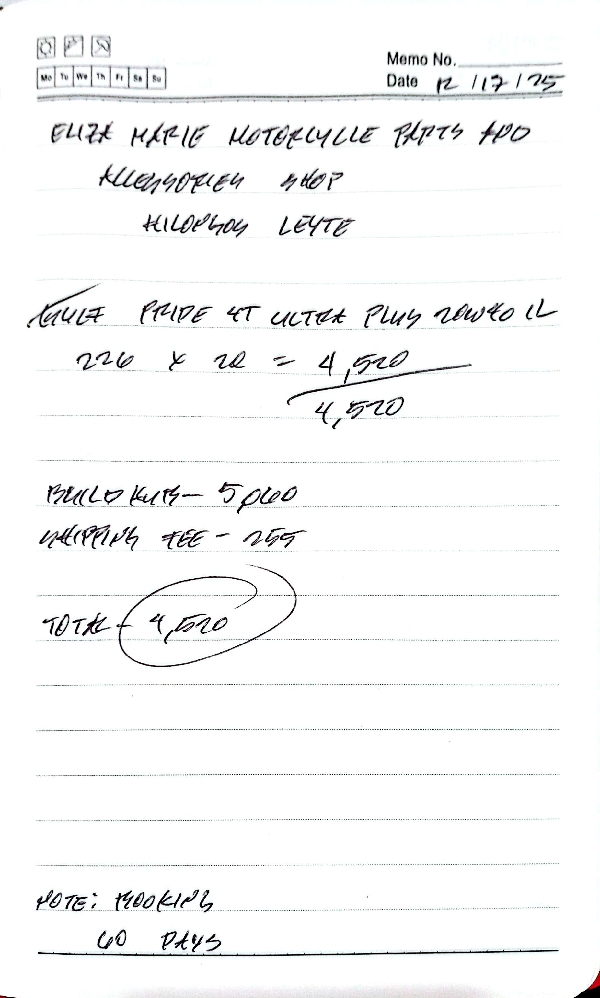 Mo Tu We Th Fr Sa Su
Memo No.
Date 12/17/25
ELIZA MARIE MOTORCYCLE PARTS AND
ACCESSORIES SHOP
HILOPSOS LEYTE
GULF PRIDE 4T ULTRA PLUS 20W40 1L
226 x 20 = 4,520
4,520
5,060
SHIPPING FEE - 255
TOTAL - 4,520
NOTE: BOOKING
60 DAYS